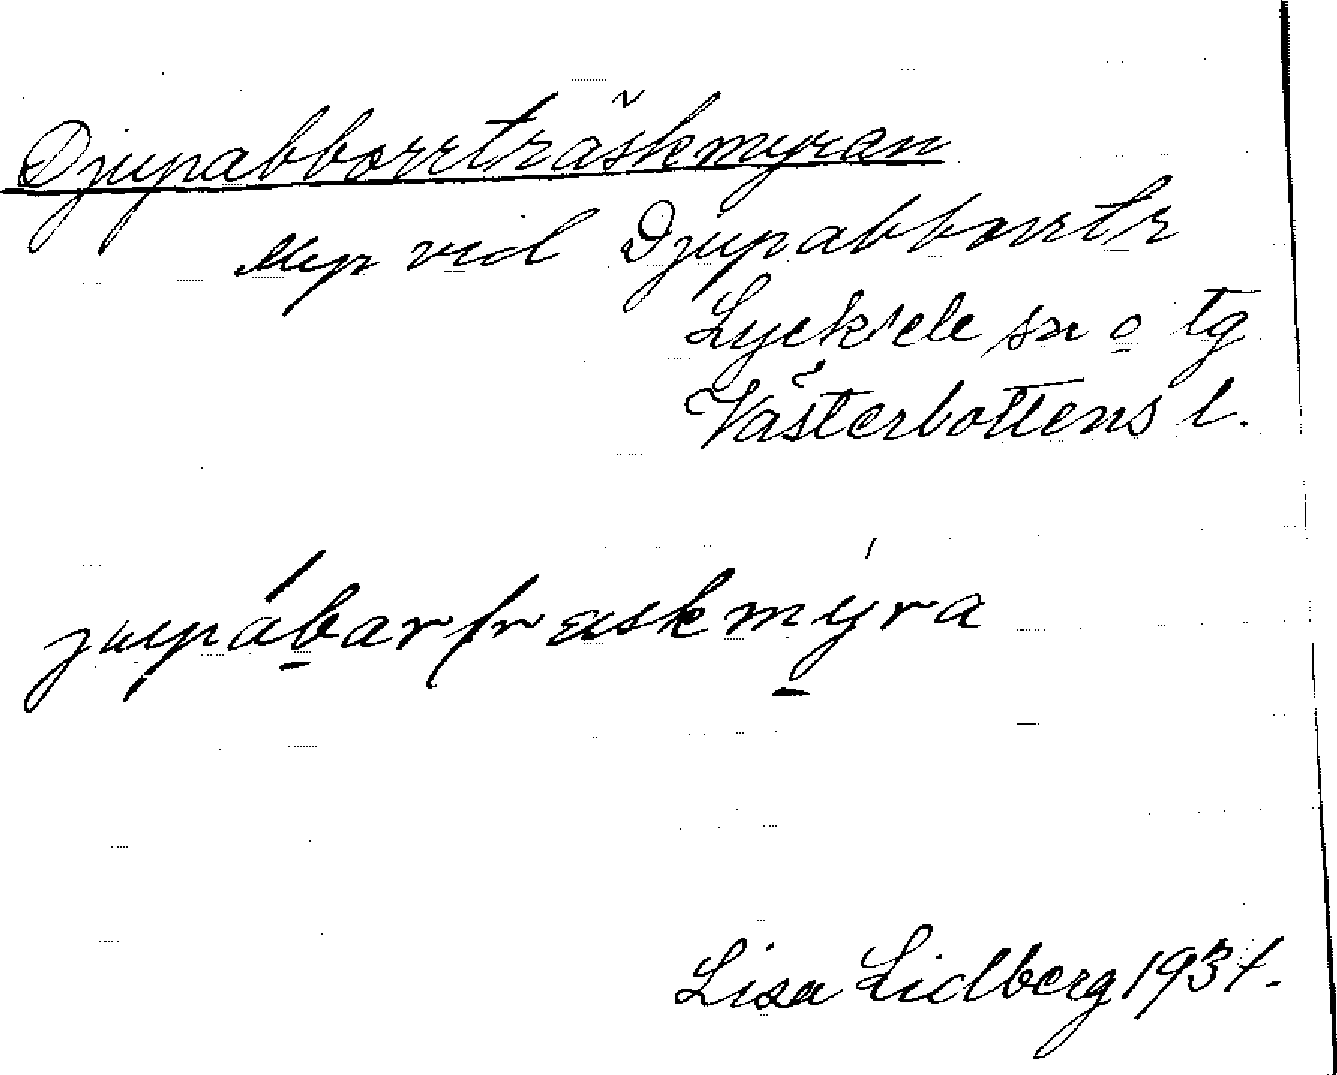 Djupabborrträskmyren
Myr vid Djupabborrtr
Lycksele sn o tg
Västerbottens l.
jupábarträskmýra
Lisa Lidberg 1931.